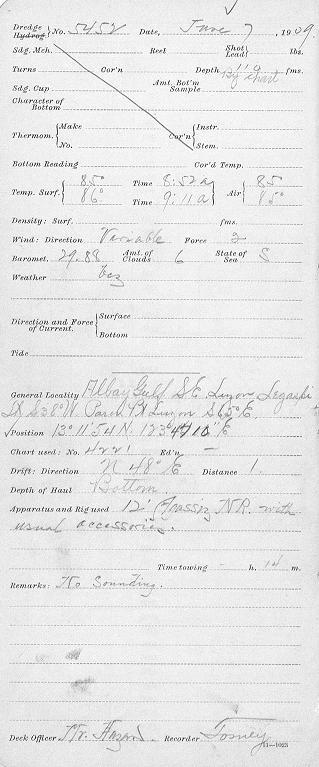 Dredge
Hydrog. No. 5452 Date, June 7, 1909.
Sdg. Mch. Reel Shot Lead lbs.
Turns Cor'n Depth fms.
By chart
Sdg. Cup Amt. Bot'm Sample
Character of Bottom
Thermom. Make No. Cor'n Instr. Stem.
Bottom Reading Cor'd Temp.
Temp. Surf. 85° Time 8:52a Air 85
86° Time 9:11a 85°
Density: Surf. fms.
Wind: Direction Variable Force 2
Baromet. 29.88 Amt. of Clouds 6 State of Sea S
Weather bcz
Direction and Force of Current. Surface
Bottom
Tide
General Locality Albay Gulf S.E. Luzon Legaspi
Lt. S 38° W. Pt Luzon S 65° E.
Position 13° 11' 54 N. 123 E
Chart used: No. 4221 Ed'n —
Drift: Direction N 48° E Distance 1.
Depth of Haul Bottom
Apparatus and Rig used 12' N.R. with
usual accessories.
Time towing - h. 14 m.
Remarks: No Sounding.
Deck Officer Mr. Recorder Tosney
11—1023